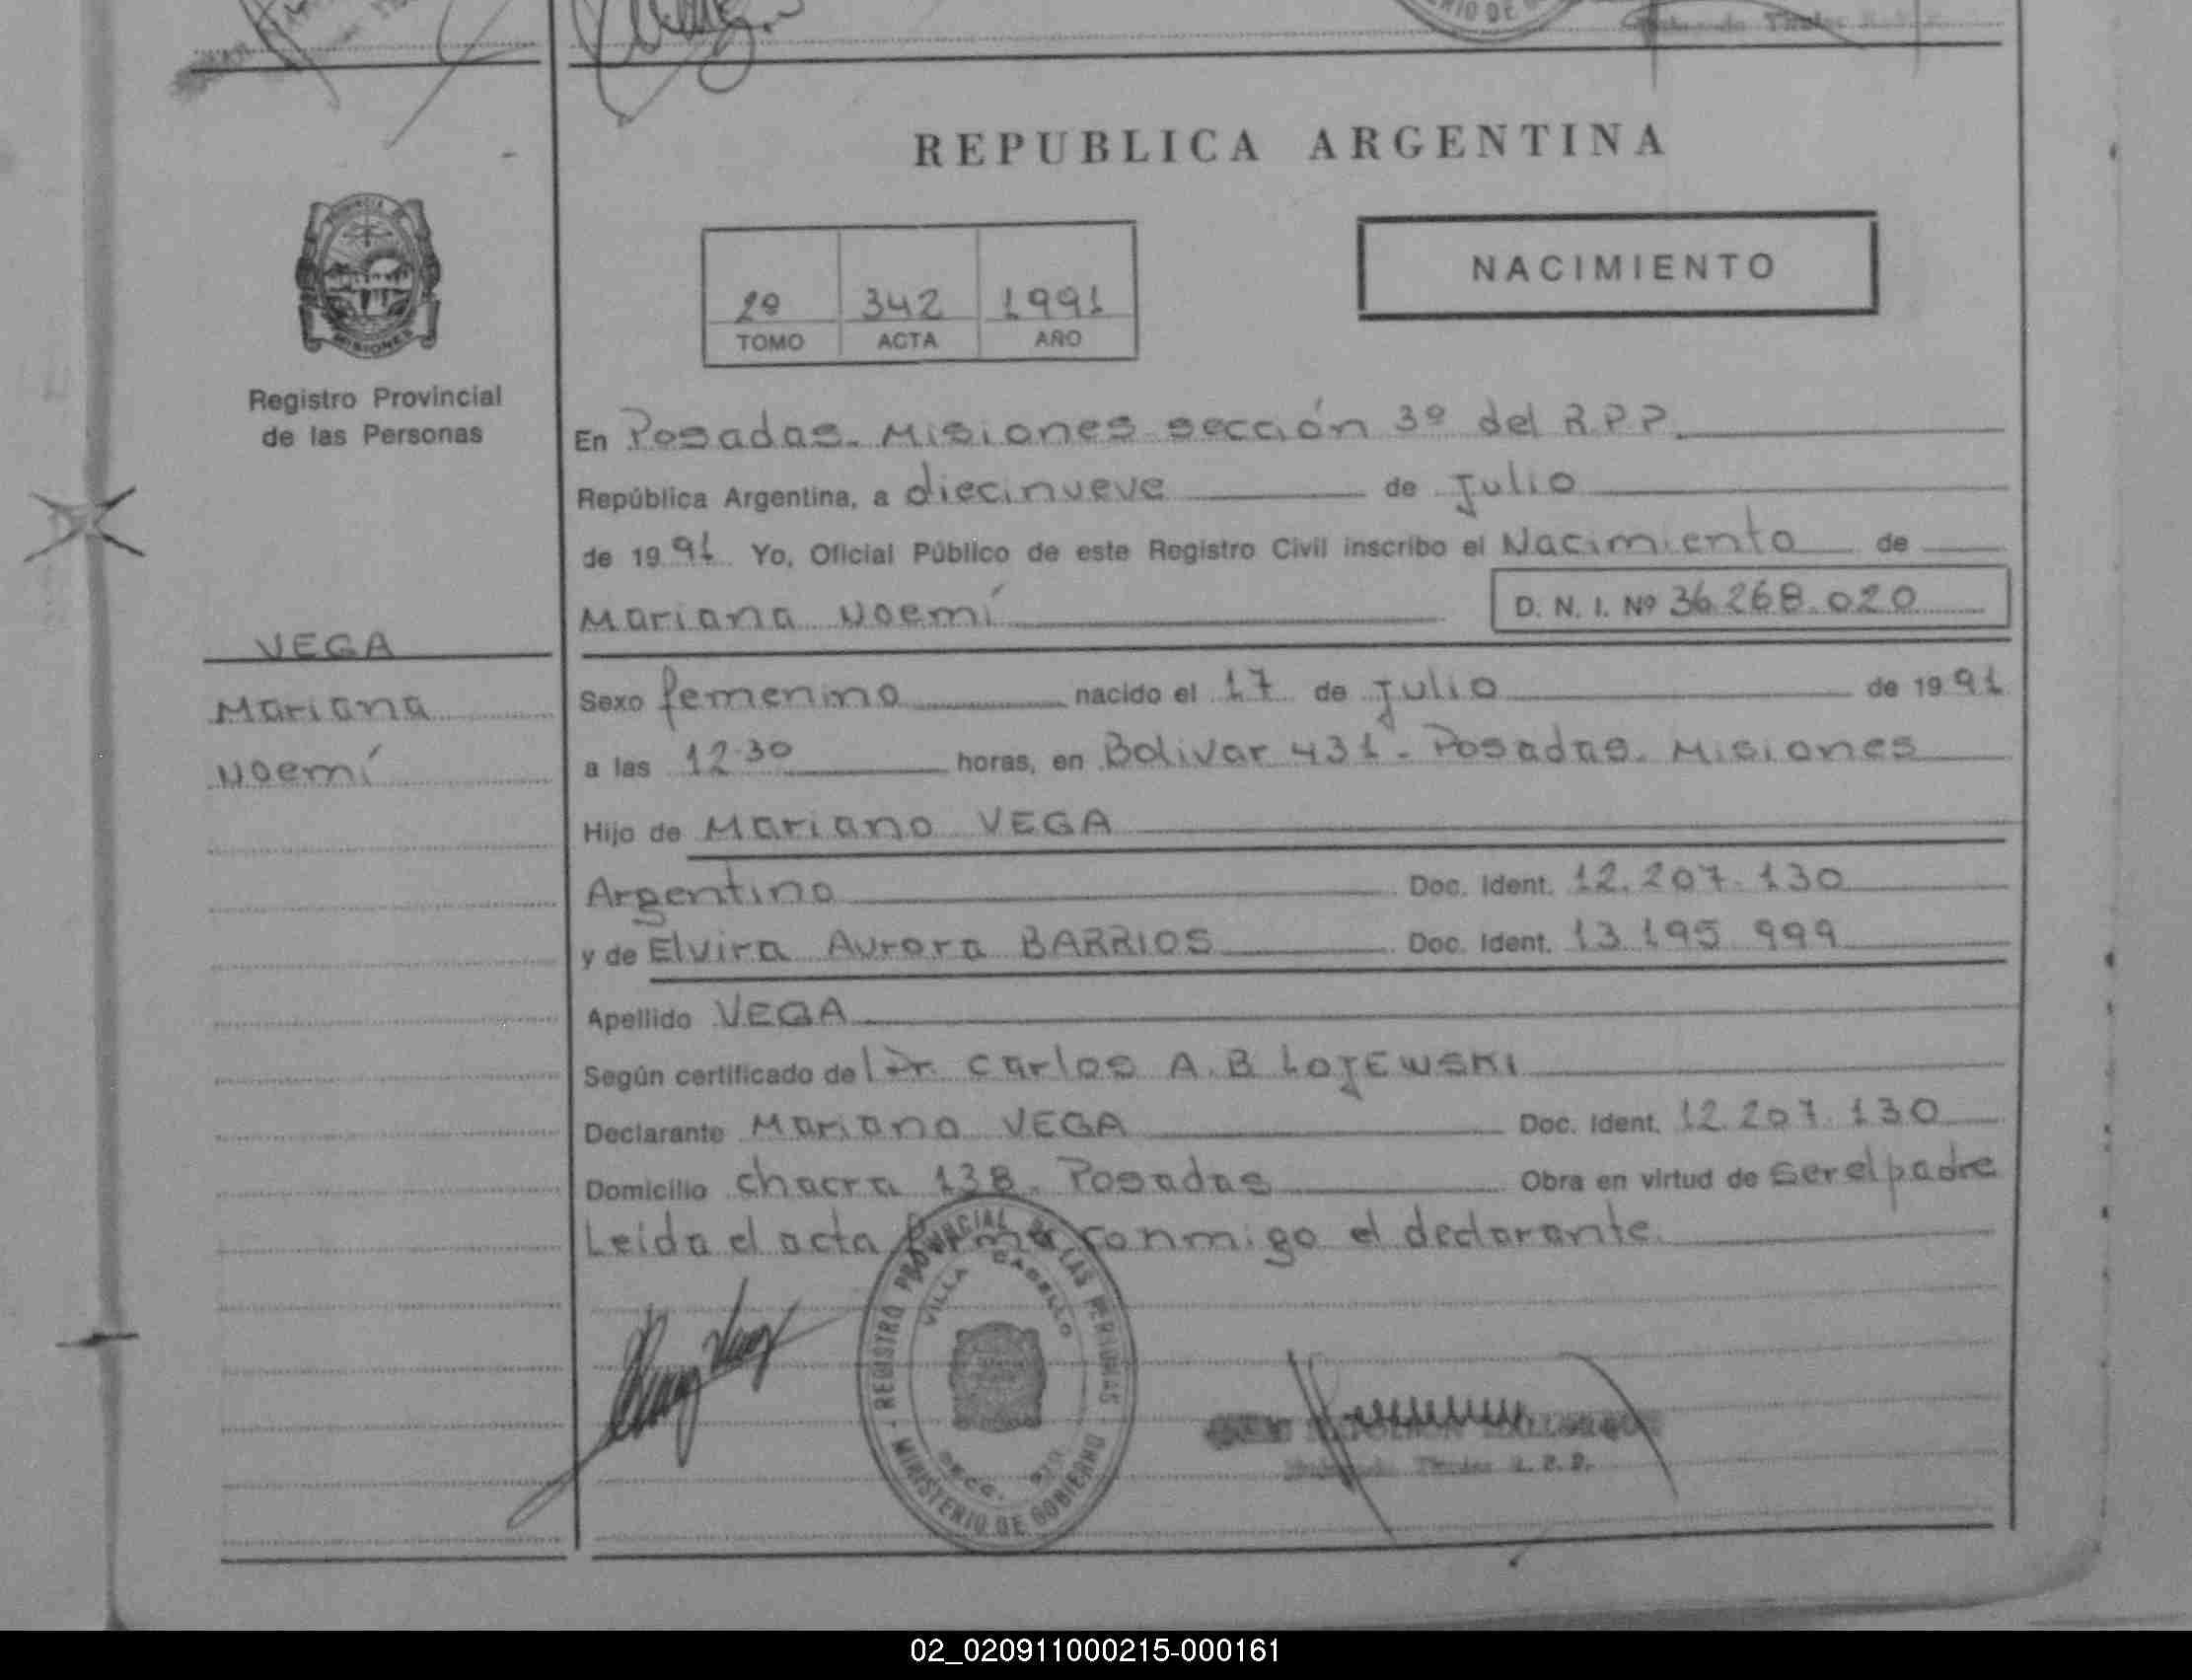 REPUBLICA ARGENTINA
PROVINCIA DE
MISIONES
Registro Provincial
de las Personas
2º 342 1991
TOMO ACTA AÑO
NACIMIENTO
En Posadas. Misiones sección 3º del R.P.P.
República Argentina, a diecinueve de Julio
de 19 91 Yo, Oficial Público de este Registro Civil inscribo el Nacimiento de
Mariana Noemí D. N. I. Nº 36.268.020
VEGA
Mariana
Noemí
Sexo femenino nacido el 17 de Julio de 19 91
a las 12.30 horas, en Bolivar 431 - Posadas. Misiones
Hijo de Mariano VEGA
Argentino Doc. Ident. 12.207.130
y de Elvira Aurora BARRIOS Doc. Ident. 13.195.999
Apellido VEGA
Según certificado del Dr. Carlos A. B LOJEWSKI
Declarante Mariano VEGA Doc. Ident. 12.207.130
Domicilio chacra 138. Posadas Obra en virtud de ser el padre
Leida el acta firma conmigo el declarante.
REGISTRO PROVINCIAL DE LAS PERSONAS
VILLA CABELLO
SECC. 3ra.
MINISTERIO DE GOBIERNO
Titular R. P. P.
02_020911000215-000161